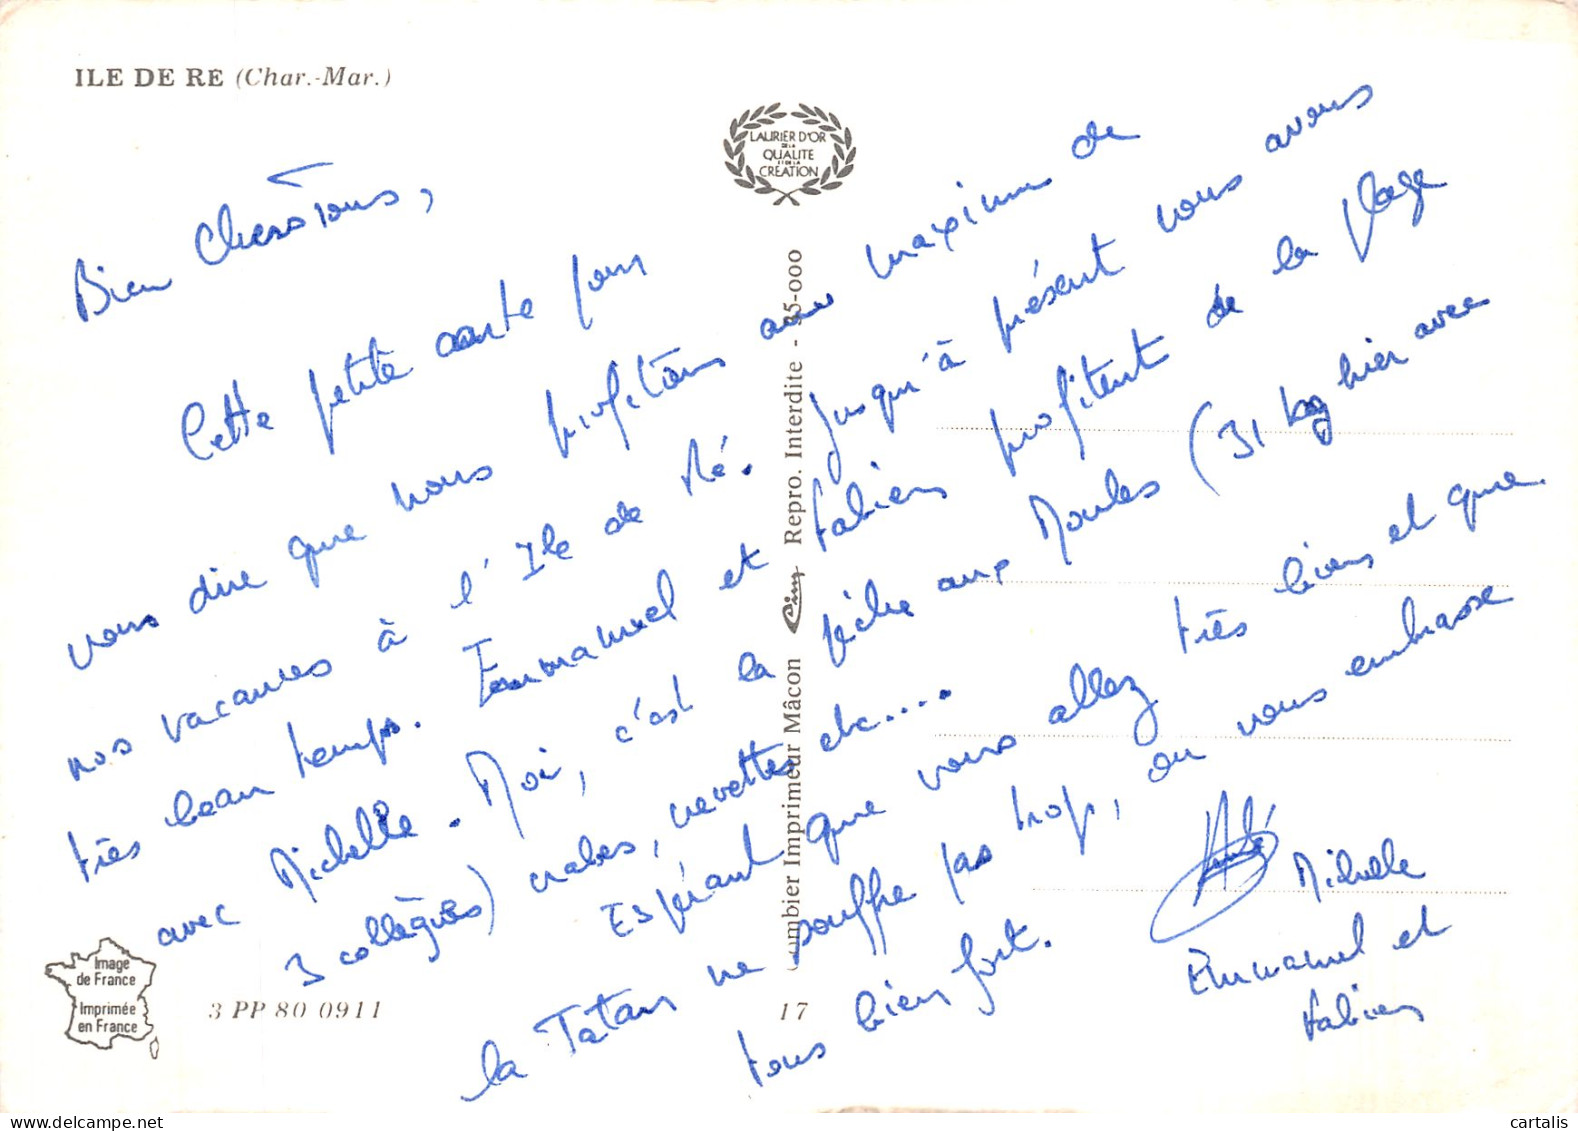 ILE DE RE (Char.-Mar.)
LAURIER D'OR
DE LA
QUALITE
ET DE LA
CREATION
Bien Chers Tous,
Cette petite carte pour
vous dire que nous profitons au maximum de
nos vacances à l'Ile de Ré. Jusqu'à présent nous avons
très beau temps. Emmanuel et Fabien profitent de la plage
avec Michelle. Moi, c'est la pêche aux Moules (31 kg hier avec
3 collègues) crabes, crevettes etc....
Espérant que vous allez très bien et que
la Tatan ne souffre pas trop, on vous embrasse
tous bien fort.
André
Michelle
Emmanuel et
Fabien
Combier Imprimeur Mâcon Cim Repro. Interdite - 35-000
Image
de France
Imprimée
en France
3 PP 80 0911
17
cartalis